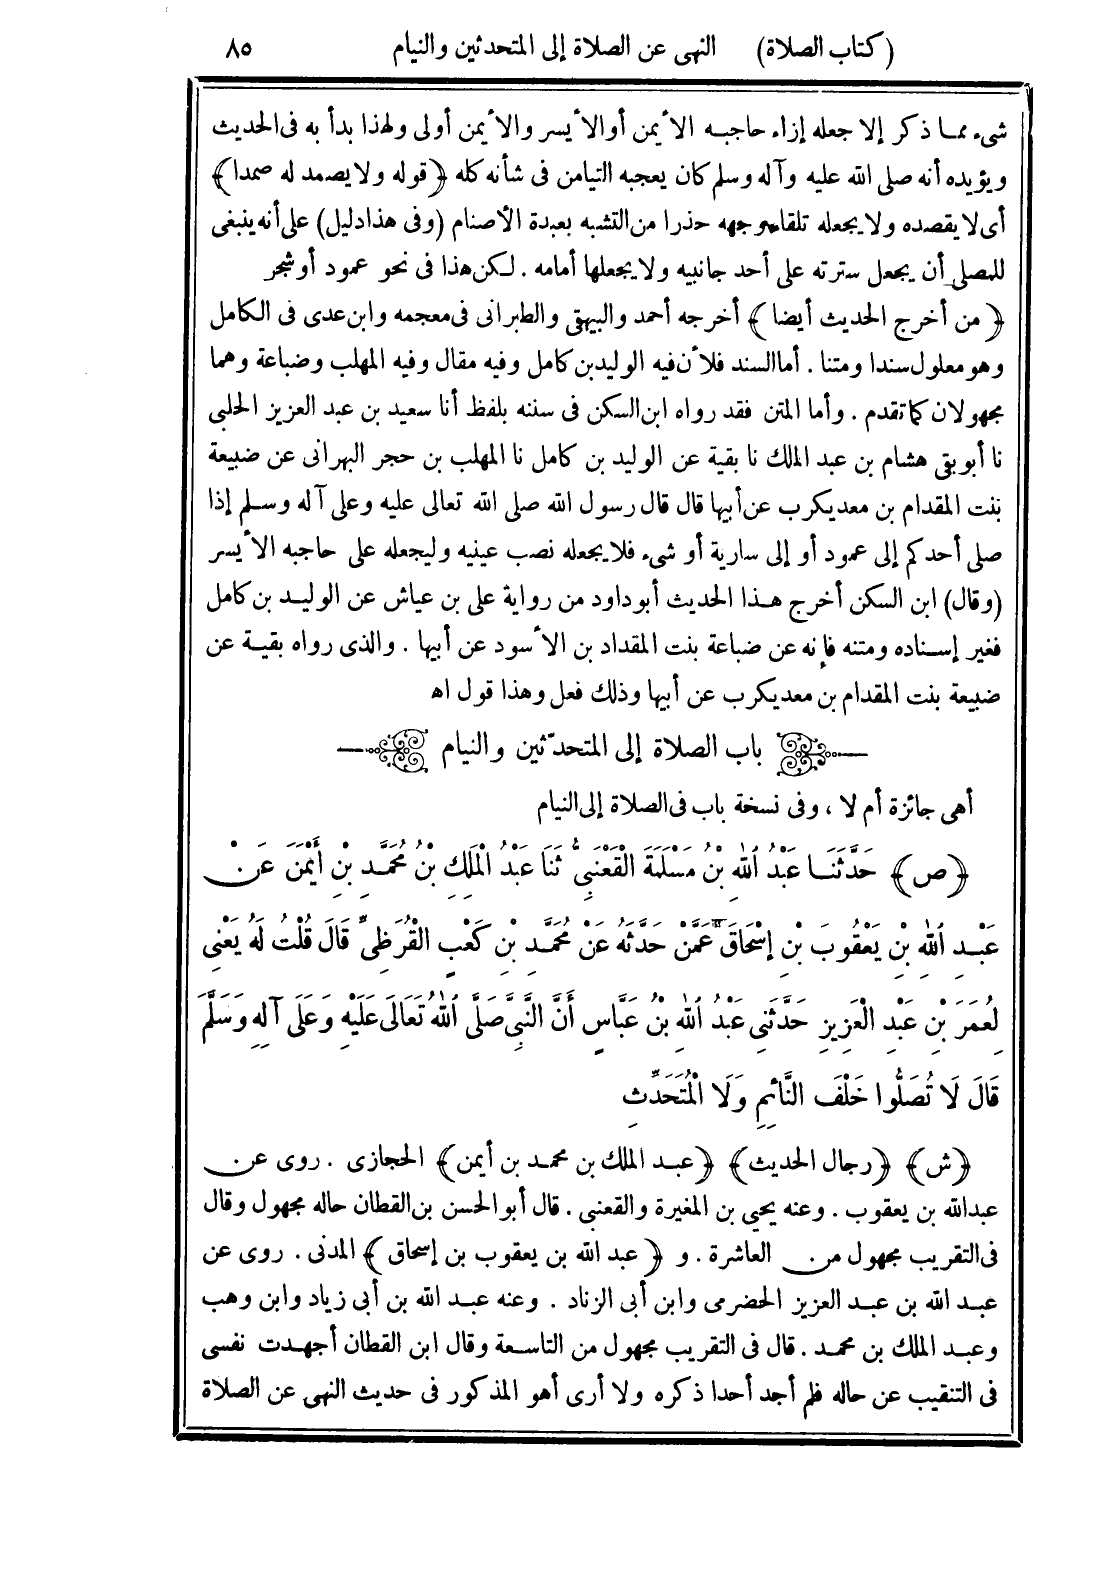 (كتاب الصلاة) النهى عن الصلاة إلى المتحدثين والنيام ٨٥
شىء مما ذكر إلا جعله إزاء حاجبه الأيمن أوالأيسر والأيمن أولى ولهذا بدأ به فى الحديث
ويؤيده أنه صلى الله عليه وآله وسلم كان يعجبه التيامن فى شأنه كله ﴿قوله ولا يصمد له صمدا﴾
أى لا يقصده ولا يجعله تلقاء وجهه حذرا من التشبه بعبدة الأصنام (وفى هذا دليل) على أنه ينبغى
للمصلى أن يجعل سترته على أحد جانبيه ولا يجعلها أمامه . لكن هذا فى نحو عمود أو شجر
﴿من أخرج الحديث أيضا﴾ أخرجه أحمد والبيهقى والطبرانى فى معجمه وابن عدى فى الكامل
وهو معلول سندا ومتنا . أما السند فلأن فيه الوليد بن كامل وفيه مقال وفيه المهلب وضباعة وهما
مجهولان كما تقدم . وأما المتن فقد رواه ابن السكن فى سننه بلفظ أنا سعيد بن عبد العزيز الحلبى
نا أبو بقى هشام بن عبد الملك نا بقية عن الوليد بن كامل نا المهلب بن حجر البهرانى عن ضبيعة
بنت المقدام بن معديكرب عن أبيها قال قال رسول الله صلى الله تعالى عليه وعلى آله وسلم إذا
صلى أحدكم إلى عمود أو إلى سارية أو شىء فلا يجعله نصب عينيه وليجعله على حاجبه الأيسر
(وقال) ابن السكن أخرج هذا الحديث أبو داود من رواية على بن عياش عن الوليد بن كامل
فغير إسناده ومتنه فإنه عن ضباعة بنت المقداد بن الأسود عن أبيها . والذى رواه بقية عن
ضبيعة بنت المقدام بن معديكرب عن أبيها وذلك فعل وهذا قول اه
باب الصلاة إلى المتحدّثين والنيام
أهى جائزة أم لا ، وفى نسخة باب فى الصلاة إلى النيام
﴿ص﴾ حَدَّثَنَا عَبْدُ اللهِ بْنُ مَسْلَمَةَ الْقَعْنَبِىُّ ثَنَا عَبْدُ الْمَلِكِ بْنُ مُحَمَّدِ بْنِ أَيْمَنَ عَنْ
عَبْدِ اللهِ بْنِ يَعْقُوبَ بْنِ إِسْحَاقَ عَمَّنْ حَدَّثَهُ عَنْ مُحَمَّدِ بْنِ كَعْبٍ الْقُرَظِىِّ قَالَ قُلْتُ لَهُ يَعْنِى
لِعُمَرَ بْنِ عَبْدِ الْعَزِيزِ حَدَّثَنِى عَبْدُ اللهِ بْنُ عَبَّاسٍ أَنَّ النَّبِىَّ صَلَّى اللهُ تَعَالَى عَلَيْهِ وَعَلَى آلِهِ وَسَلَّمَ
قَالَ لَا تُصَلُّوا خَلْفَ النَّائِمِ وَلَا الْمُتَحَدِّثِ
﴿ش﴾ ﴿رجال الحديث﴾ ﴿عبد الملك بن محمد بن أيمن﴾ الحجازى . روى عن
عبد الله بن يعقوب . وعنه يحيى بن المغيرة والقعنبى . قال أبو الحسن بن القطان حاله مجهول وقال
فى التقريب مجهول من العاشرة . و ﴿عبد الله بن يعقوب بن إسحاق﴾ المدنى . روى عن
عبد الله بن عبد العزيز الحضرمى وابن أبى الزناد . وعنه عبد الله بن أبى زياد وابن وهب
وعبد الملك بن محمد . قال فى التقريب مجهول من التاسعة وقال ابن القطان أجهدت نفسى
فى التنقيب عن حاله فلم أجد أحدا ذكره ولا أرى أهو المذكور فى حديث النهى عن الصلاة